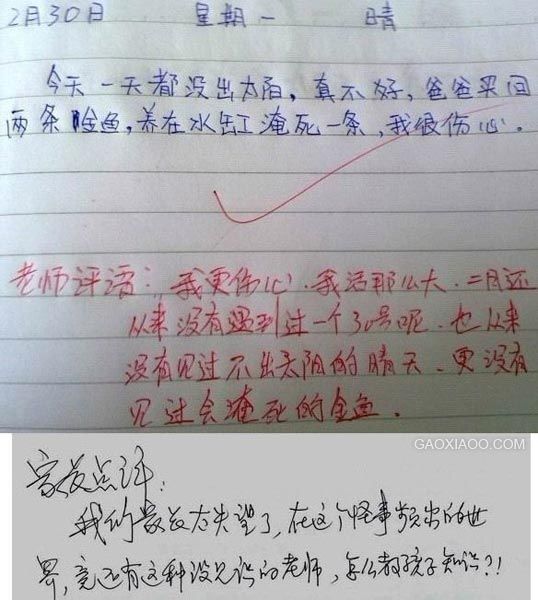 2月30日 星期一 晴
今天一天都没出太阳，真不好，爸爸买回
两条金鱼，养在水缸淹死一条，我很伤心。
老师评语：我更伤心．我活那么大．二月还
从来没有遇到过一个30号呢．也从来
没有见过不出太阳的晴天．更没有
见过会淹死的金鱼．
GAOXIAOO.COM
家长点评：
我的最太失望了，在这个怪事频出的世
界，竟还有这种没见识的老师，怎么教孩子知识？！